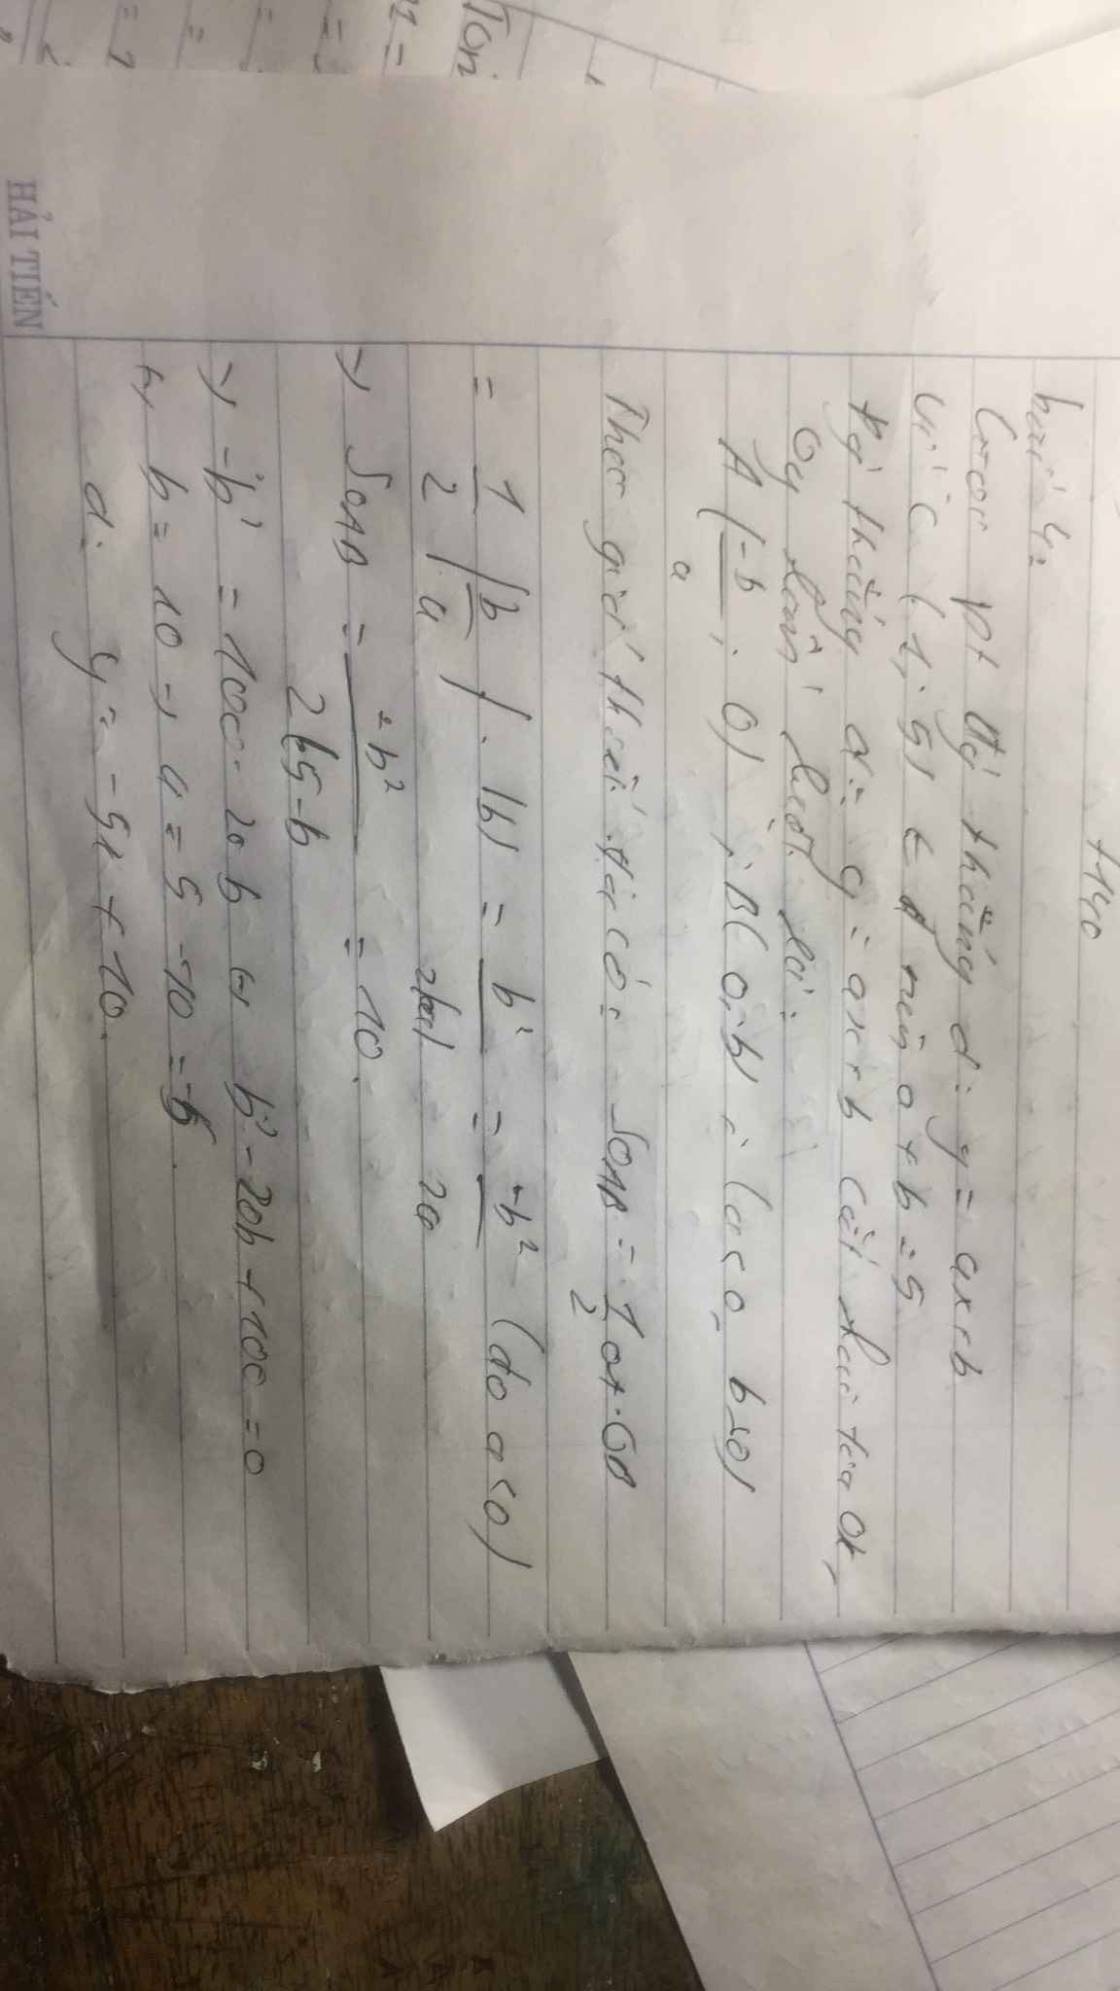 H40
bài 42
Gọi pt đg thẳng d: y = ax+b
vì C (1; 5) ∈ d nên a+b = 5
đg thẳng d: y = ax+b cắt hai tia Ox,
Oy lần lượt tại:
A (-b/a; 0) ; B(0; b) ; (a<0, b>0)
Theo giả thiết ta có: SOAB = 1/2 OA.OB
= 1/2 |b/a| . |b| = b²/2|a| = -b²/2a (do a<0)
=> SOAB = -b²/2(5-b = 10.
=> -b² = 100 - 20b <=> b² - 20b + 100 = 0
<=> b = 10 => a = 5 - 10 = -5
d: y = -5x + 10.
HẢI TIẾN